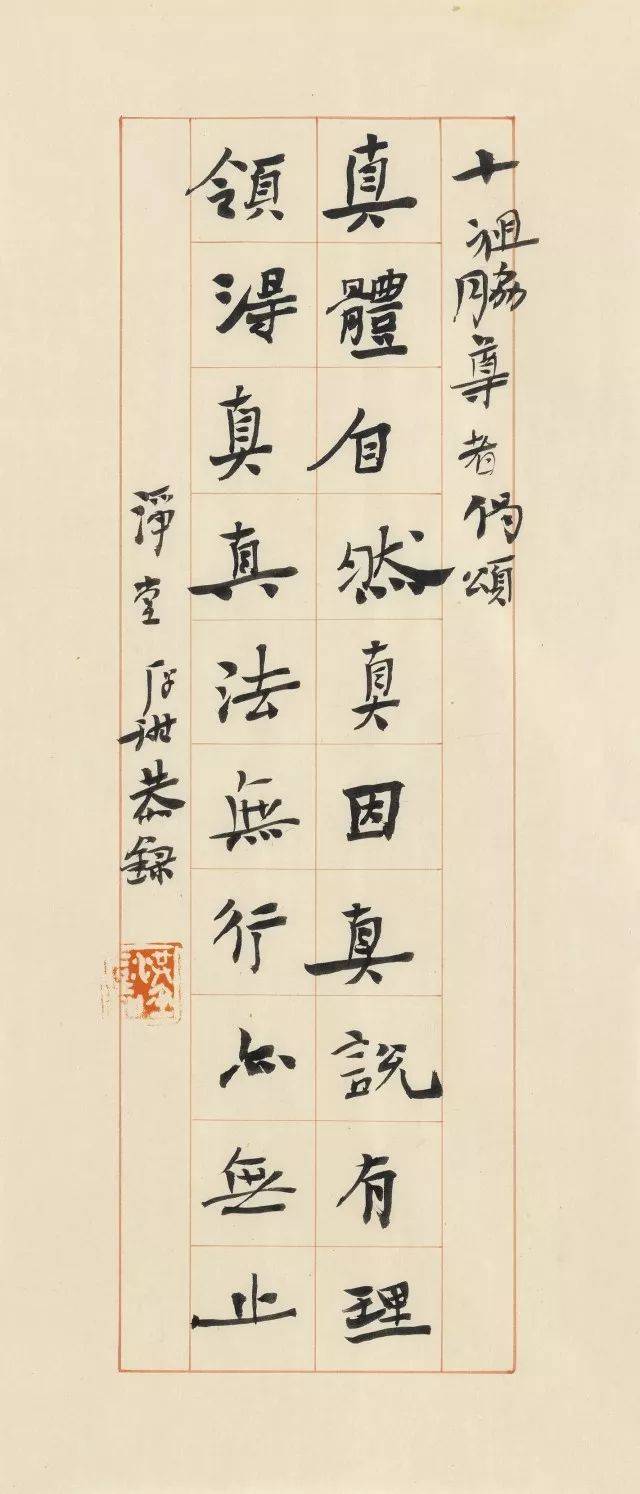 十祖脇尊者偈頌
真體自然真因真說有理
領得真真法無行亦無止
淨堂 恭錄